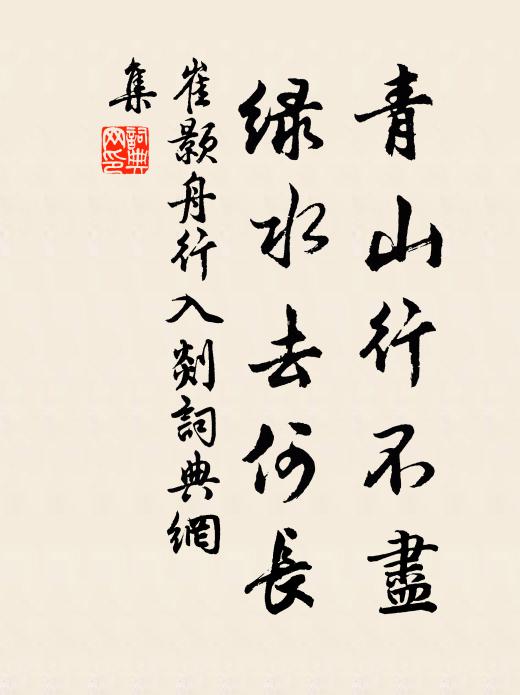 青山行不盡
綠水去何長
崔顥舟行入剡詞典網
集
詞典
网印